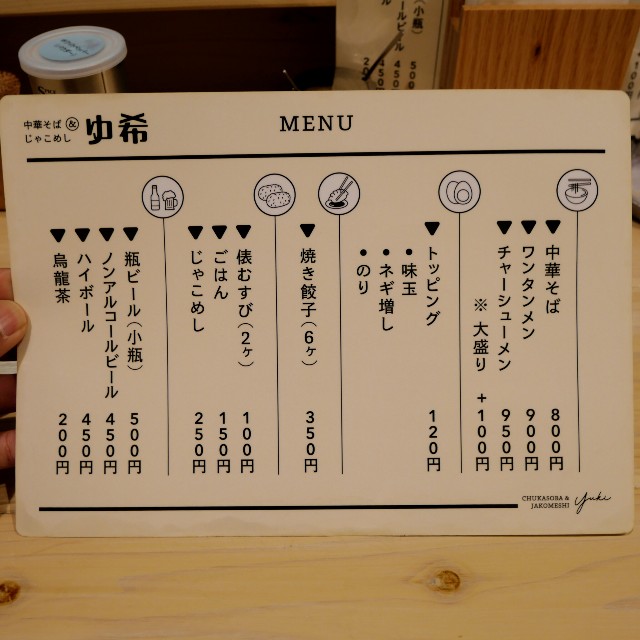 中華そば&
じゃこめし
ゆ希
MENU
中華そば 800円
ワンタンメン 900円
チャーシューメン 950円
※ 大盛り +100円
トッピング 120円
・味玉
・ネギ増し
・のり
焼き餃子(6ヶ) 350円
俵むすび(2ヶ) 100円
ごはん 150円
じゃこめし 250円
瓶ビール(小瓶) 500円
ノンアルコールビール 450円
ハイボール 450円
烏龍茶 200円
CHUKASOBA &
JAKOMESHI
yuki